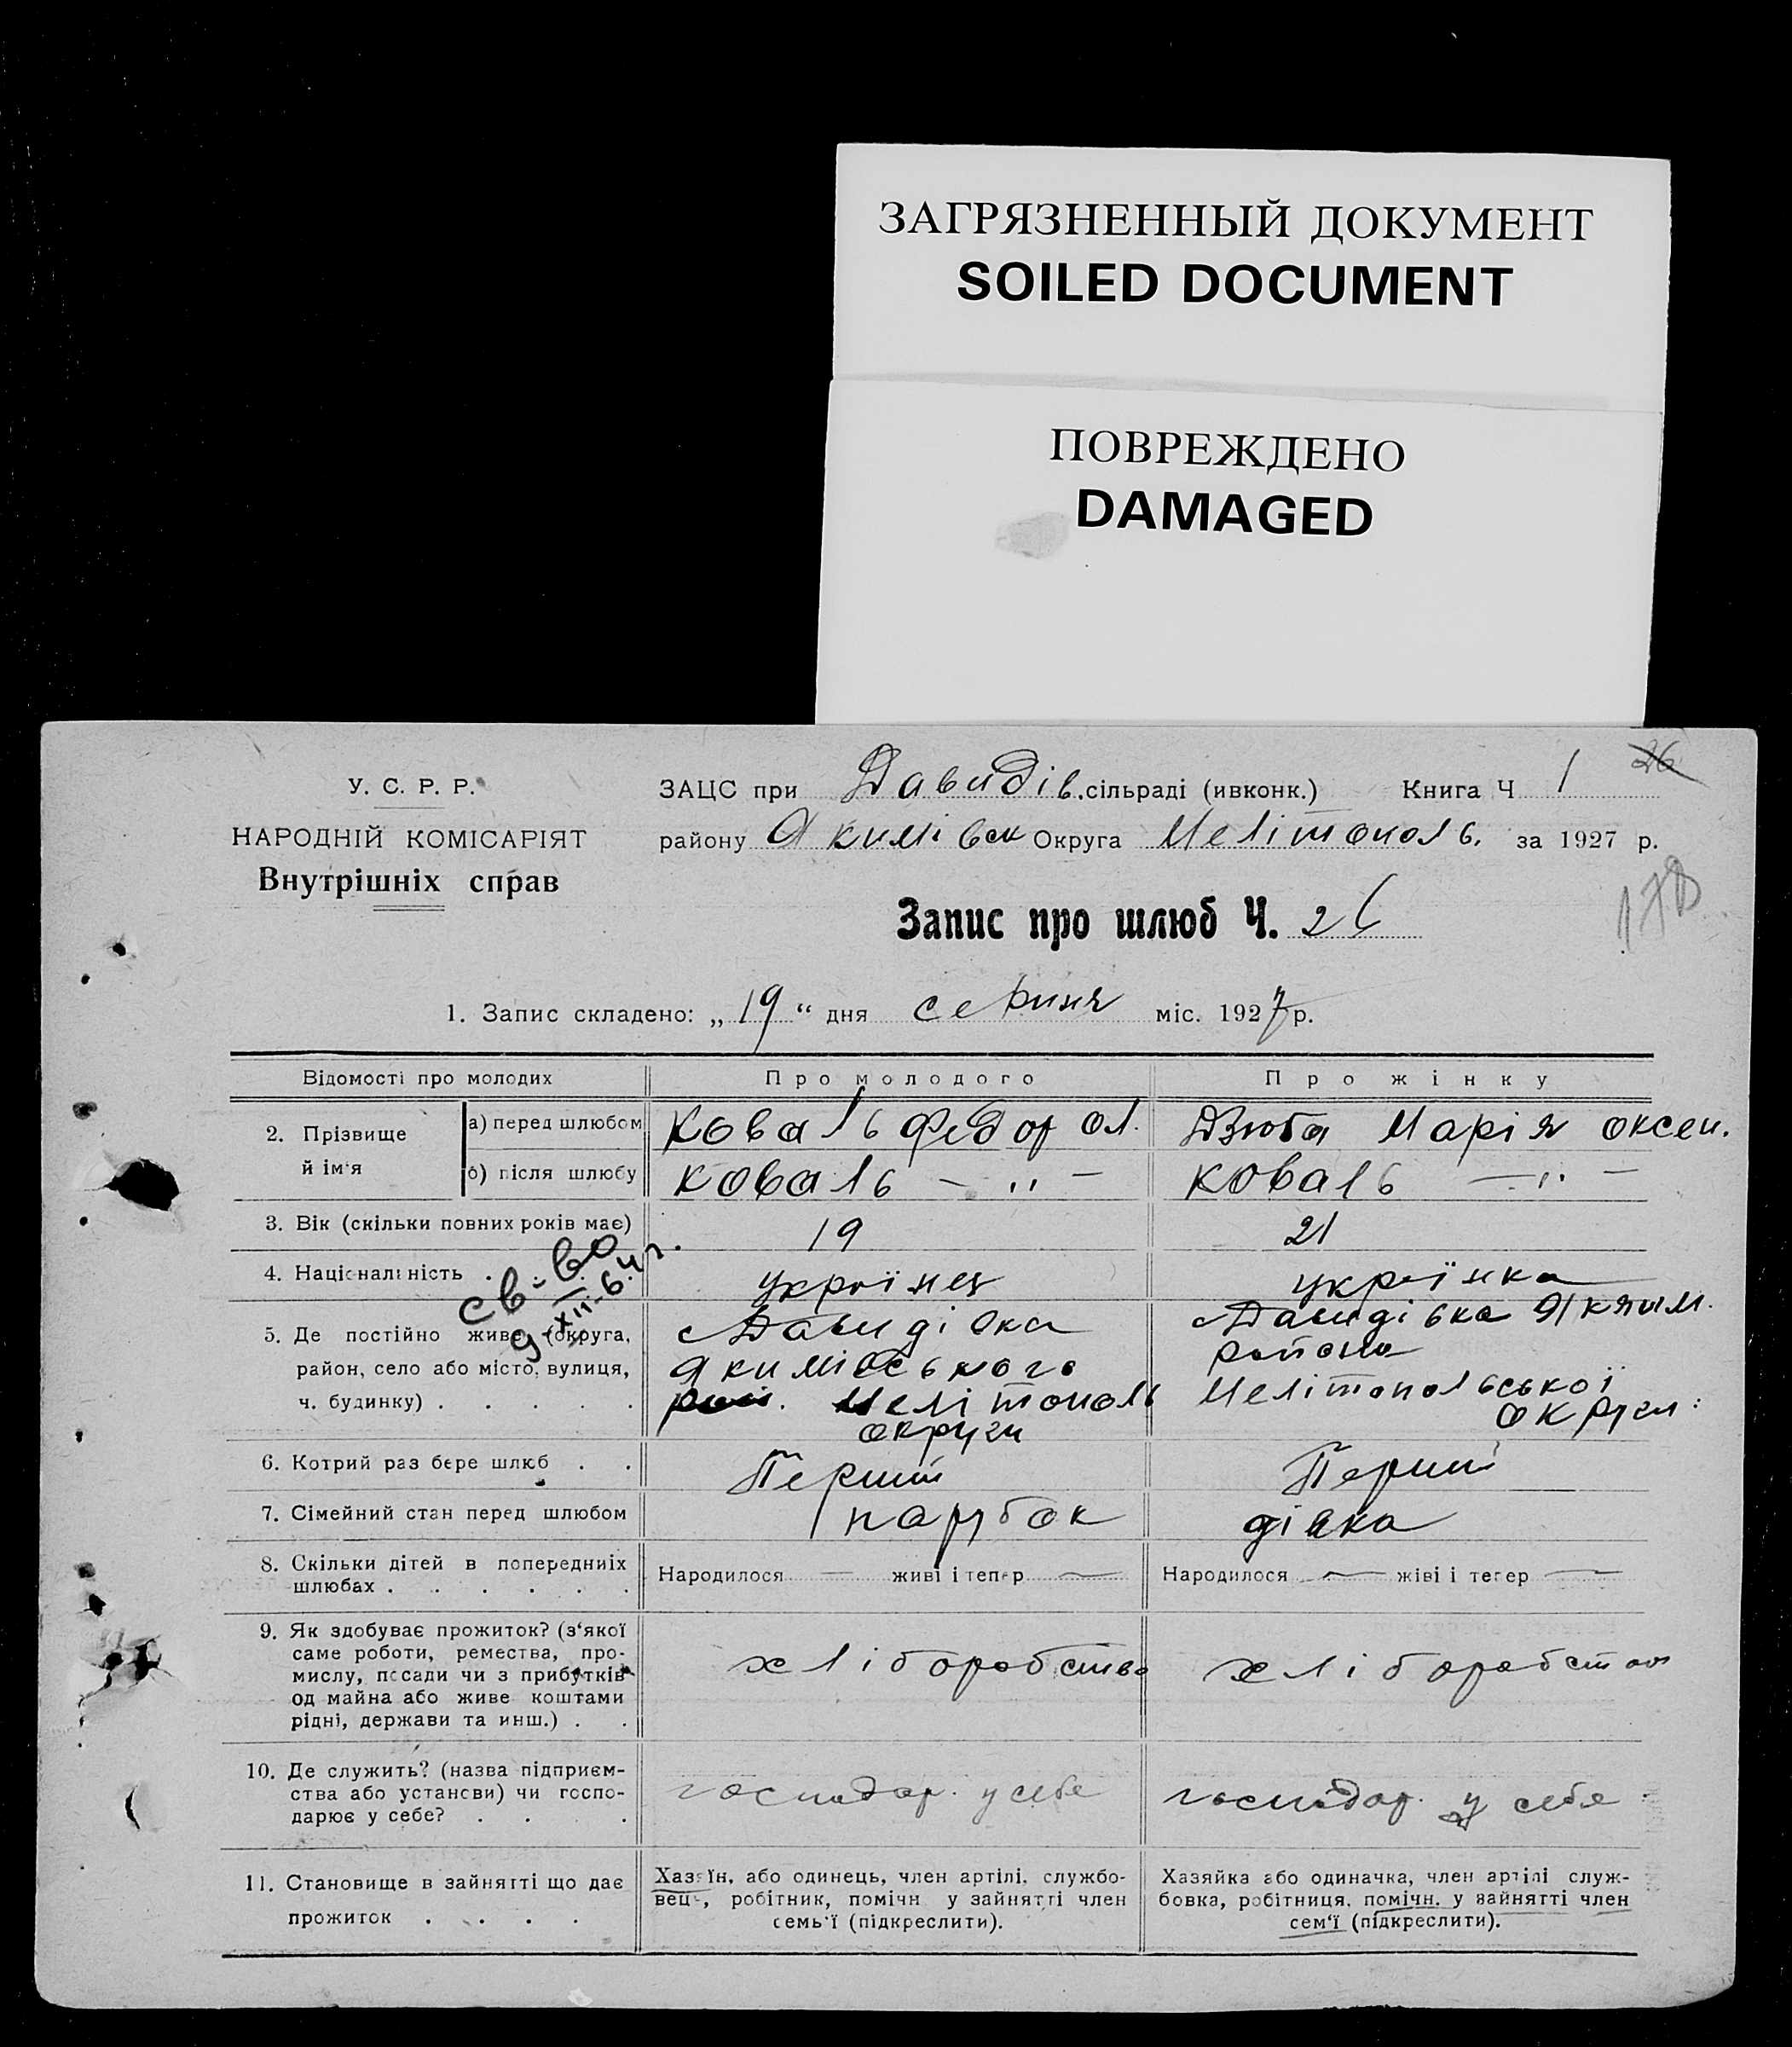 ЗАГРЯЗНЕННЫЙ ДОКУМЕНТ
SOILED DOCUMENT
ПОВРЕЖДЕНО
DAMAGED
У. С. Р. Р.
НАРОДНІЙ КОМІСАРІЯТ
Внутрішніх справ
ЗАЦС при Давидів. сільраді (ивконк.) Книга Ч 1 26
району Якимівск Округа Мелітополь. за 1927 р.
178
Запис про шлюб Ч. 26
1. Запис складено: „19“ дня серпня міс. 1927 р.
Відомості про молодих Про молодого Про жінку
2. Прізвище й ім'я
а) перед шлюбом Коваль Федор Ол. Дзюба Марія Оксен.
б) після шлюбу Коваль — '' — Коваль — '' —
3. Вік (скільки повних років має) 19 21
4. Національність . . . українец українка
св-во
9-XII-64 г.
5. Де постійно живе (округа,
район, село або місто, вулиця,
ч. будинку) . . . . .
Давидівка
Якимівського
рай. Мелітополь
округи
Давидівка Якким.
района
Мелітопольської
округи
6. Котрий раз бере шлюб . . Перший Перший
7. Сімейний стан перед шлюбом парубок дівка
8. Скільки дітей в попередниіх
шлюбах . . . . . .
Народилося — живі і тепер — Народилося — жіві і тепер —
9. Як здобуває прожиток? (з'якої
саме роботи, ремества, про-
мислу, посади чи з прибутків
од майна або живе коштами
рідні, держави та инш.) . .
хліборобство хліборобство
10. Де служить? (назва підприєм-
ства або установи) чи госпо-
дарює у себе? . . .
господар. у себе господар. у себе
11. Становище в зайнятті що дає
прожиток . . . .
Хазяїн, або одинець, член артілі, службо-
вець, робітник, помічн. у зайнятті член
семь'ї (підкреслити).
Хазяйка або одиначка, член артілі служ-
бовка, робітниця, помічн. у зайнятті член
сем'ї (підкреслити).